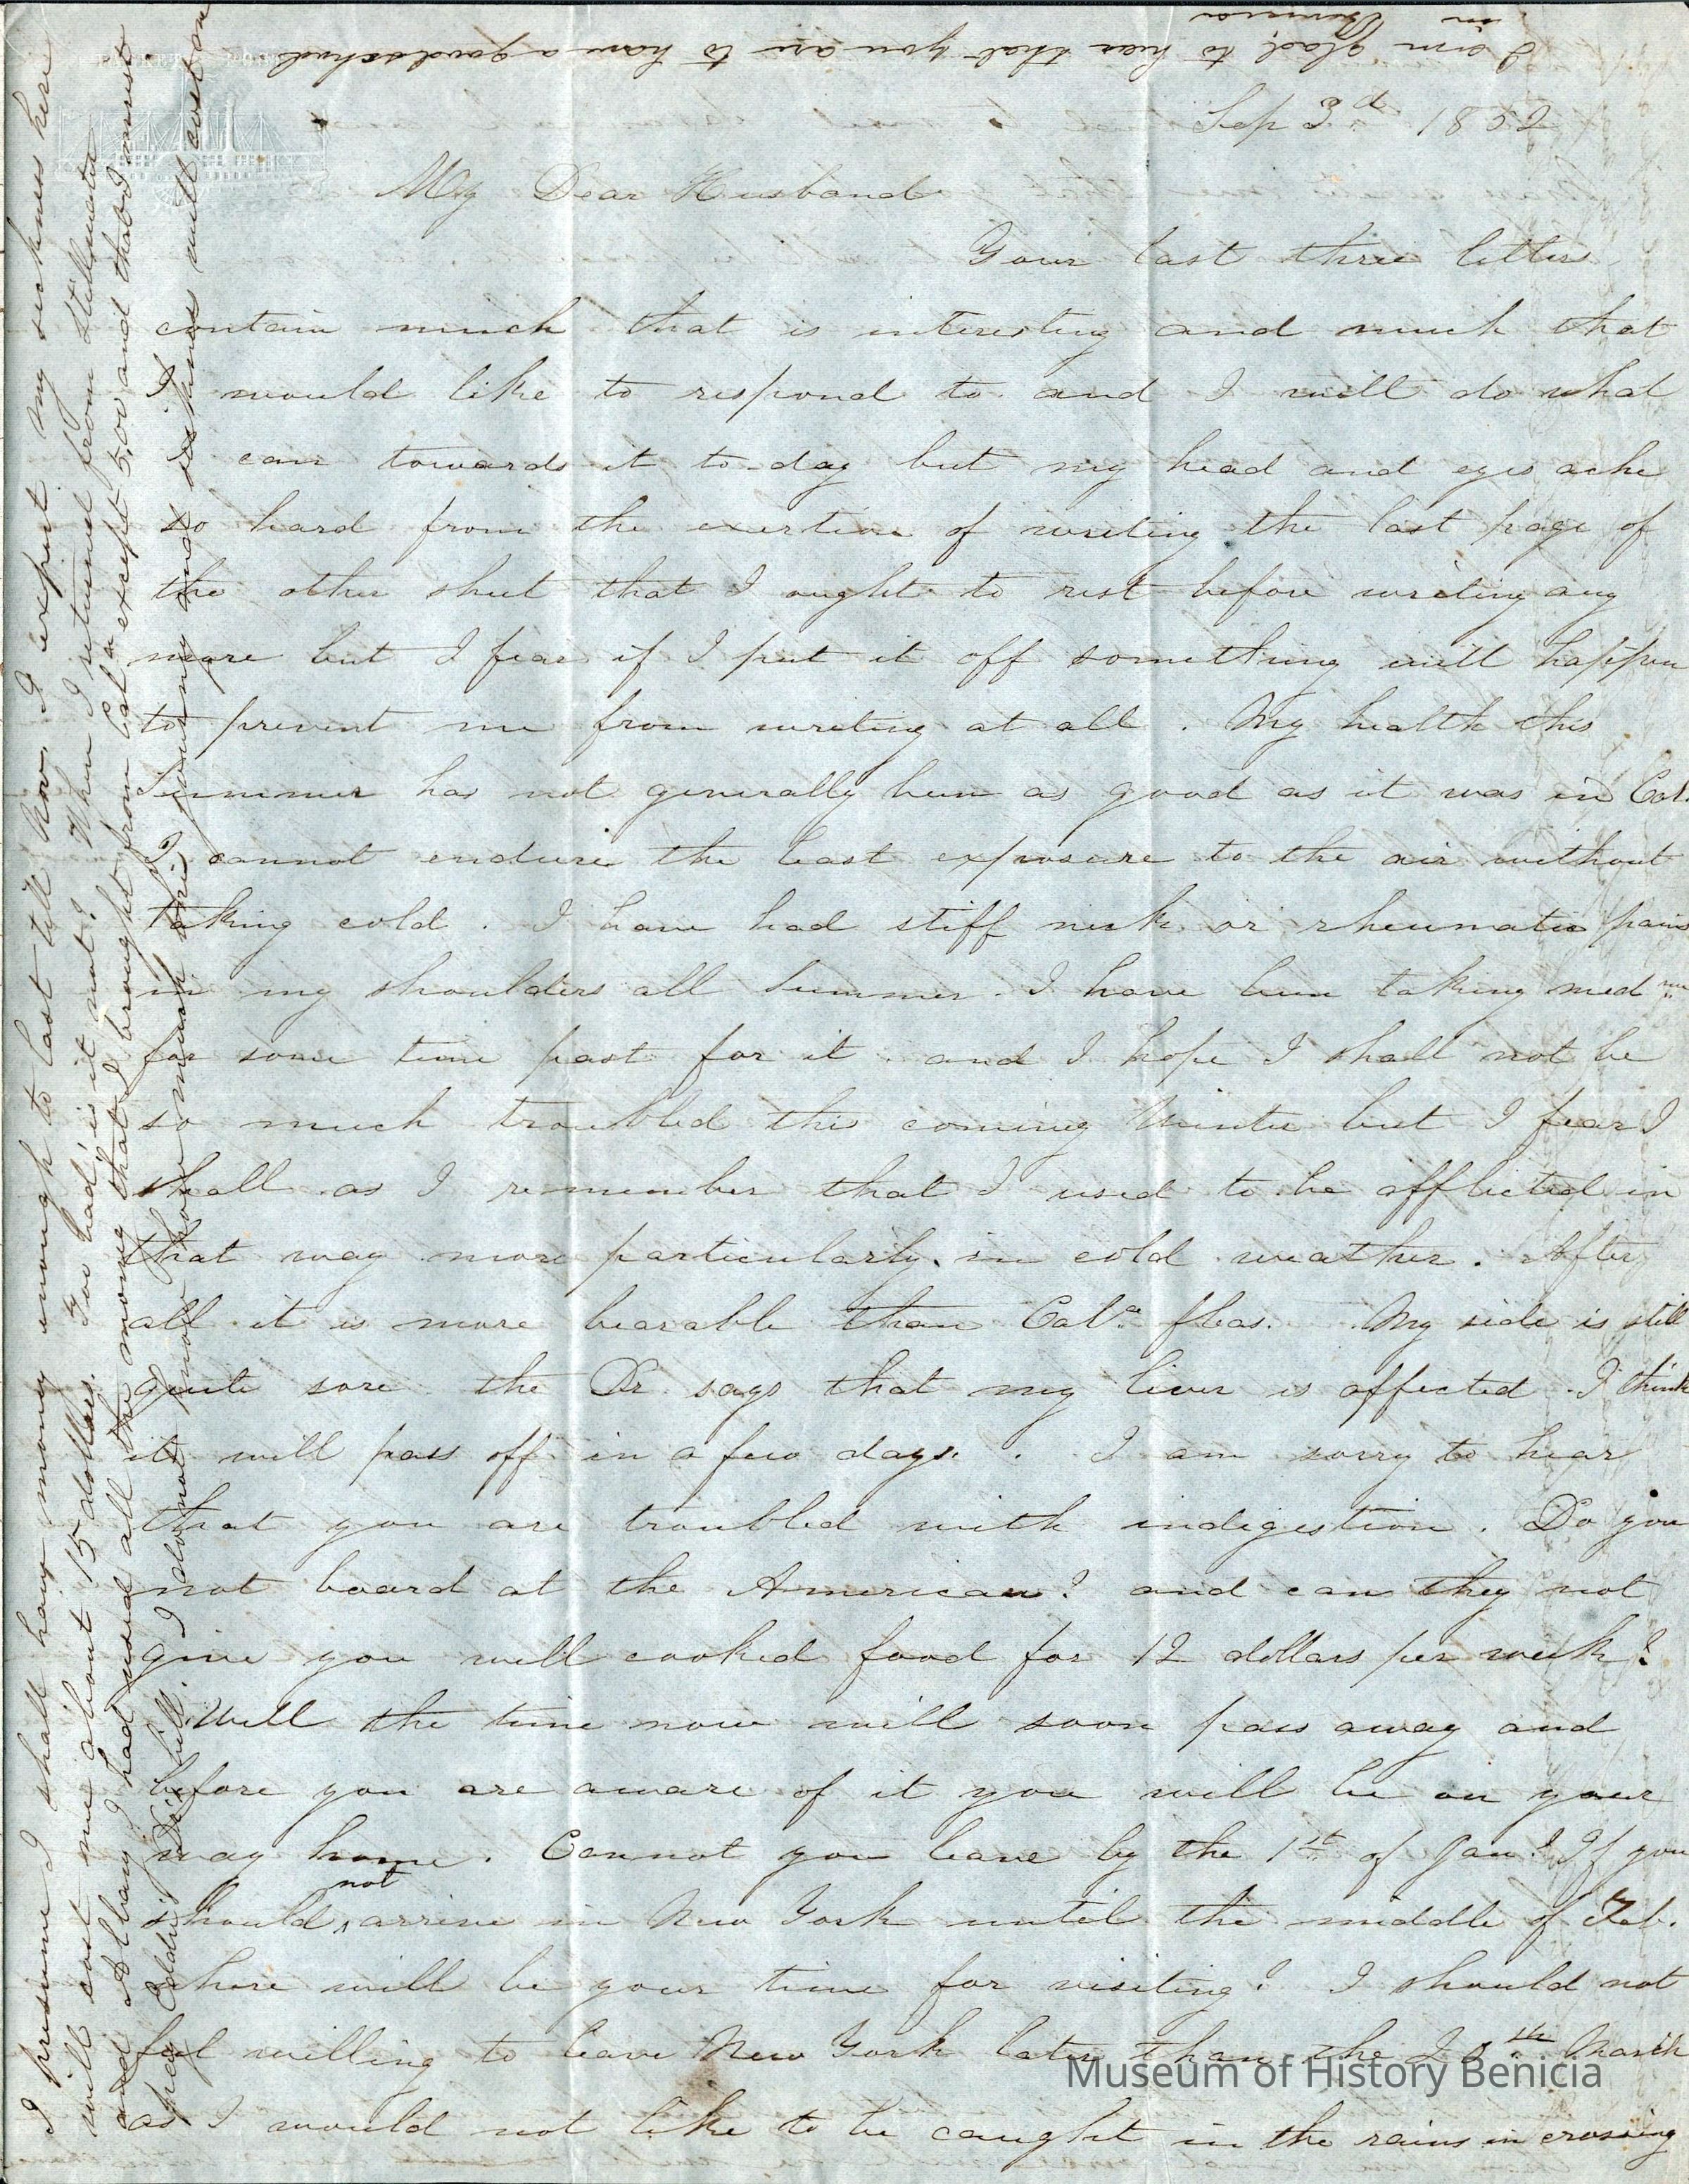 I am glad to hear that you are to have a good school
in Benicia
Sep 3d 1852
My Dear Husband
Your last three letters
contain much that is interesting and much that
I would like to respond to and I will do what
I can towards it to-day but my head and eyes ache
so hard from the exertion of writing the last page of
the other sheet that I ought to rest before writing any
more but I fear if I put it off something will happen
to prevent me from writing at all. My health this
Summer has not generally been as good as it was in Cal.
I cannot endure the least exposure to the air without
taking cold. I have had stiff neck or rheumatic pains
in my shoulders all Summer. I have been taking med
for some time past for it and I hope I shall not be
so much troubled this coming Winter but I fear I
shall as I remember that I used to be afflicted in
that way more particularly in cold weather. After
all it is more bearable than Cala fleas. My side is still
quite sore the Dr. says that my liver is affected. I think
it will pass off in a few days. I am sorry to hear
that you are troubled with indigestion. Do you
not board at the American? and can they not
give you well cooked food for 12 dollars per week?
Well the time now will soon pass away and
before you are aware of it you will be on your
way home. Cannot you leave by the 1st of Jan? If you
should not arrive in New York until the middle of Feb.
where will be your time for visiting? I should not
feel willing to leave New York later than the 20th March
as I would not like to be caught in the rains in crossing
I presume I shall have money enough to last till Nov. I expect my sickness here
will cost me about 15 dollars. Too bad, is it not? When I returned from Stillwater
and Albany I had used all the money that I brought from Cala except 5,00 and that I must
pay Eddie's Dr.'s bill. I do not know how much this journey and sickness will cost me
Museum of History Benicia